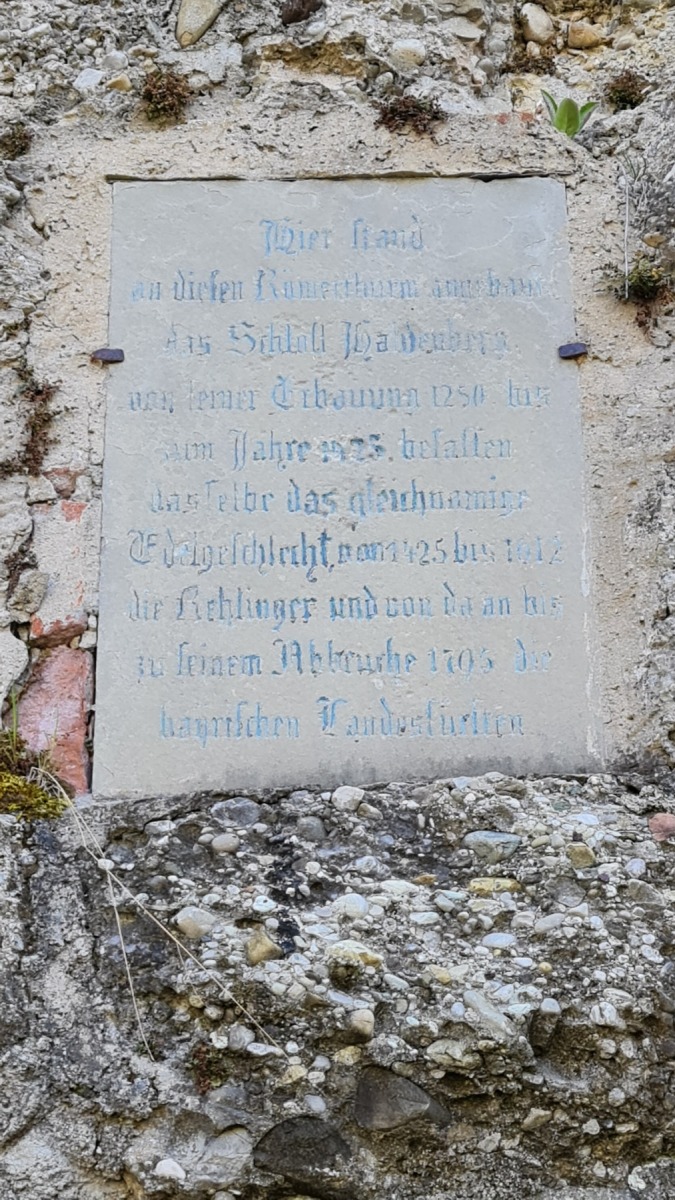 Hier stand
an diesen Römerthurm angebaut
das Schloß Haldenberg
von seiner Erbauung 1250 bis
zum Jahre 1425, besassen
dasselbe das gleichnamige
Edelgeschlecht, von 1425 bis 1612
die Rehlinger und von da an bis
zu seinem Abbruche 1795 die
bayrischen Landesfürsten